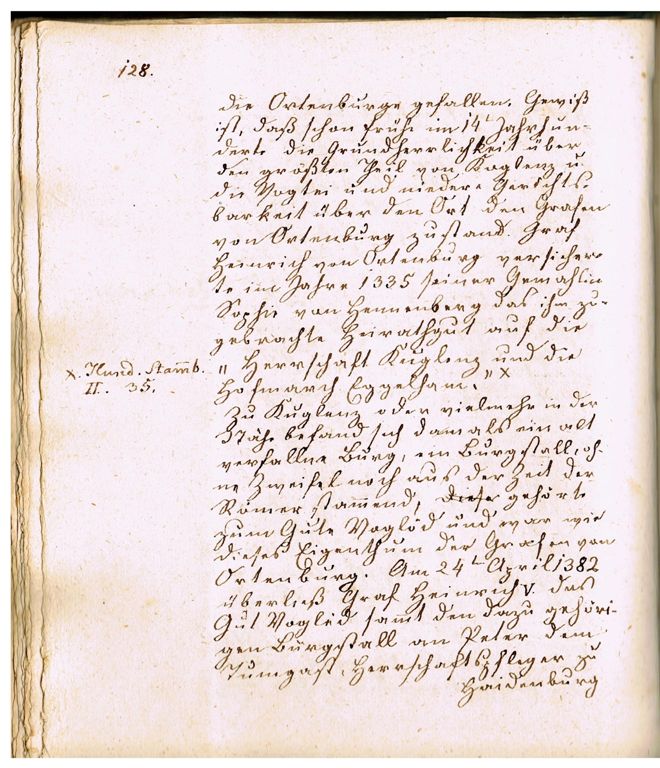 128.
die Ortenburge gefallen. Gewiß
ist, daß schon frühe im 14t Jahrhun-
derte die Grundherrlichkeit über
den größten Theil von Koglenz u.
die Vogtei und niedere Gerichts-
barkeit über den Ort den Grafen
von Ortenburg zustand. Graf
Heinrich von Ortenburg versicher-
te im Jahre 1335 seiner Gemahlin
Sophie von Hennenberg das ihm zu-
gebrachte Heirathgut auf die
„Herrschaft Kuglenz und die
Hofmarch Eggelham." x
x. Hund. Stammb.
II. 35.
Zu Kuglenz oder vielmehr in der
Nähe befand sich damals ein alt
verfallne Burg, ein Burgstall, oh-
ne Zweifel noch aus der Zeit der
Römer stammend, dieser gehörte
zum Gute Voglöd und war wie
dieses Eigenthum der Grafen von
Ortenburg. Am 24t April 1382
überließ Graf Heinrich V. das
Gut Voglöd sammt den dazu gehöri-
gen Burgstall an Peter dem
Tumgast, Herrschaftspfleger zu
Haidenburg